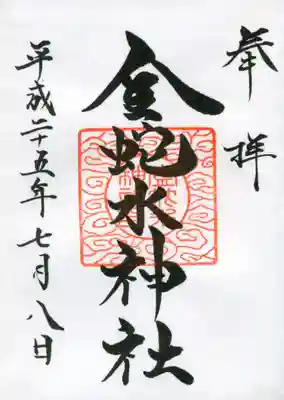 奉拝
金蛇水神社
平成二十五年七月八日